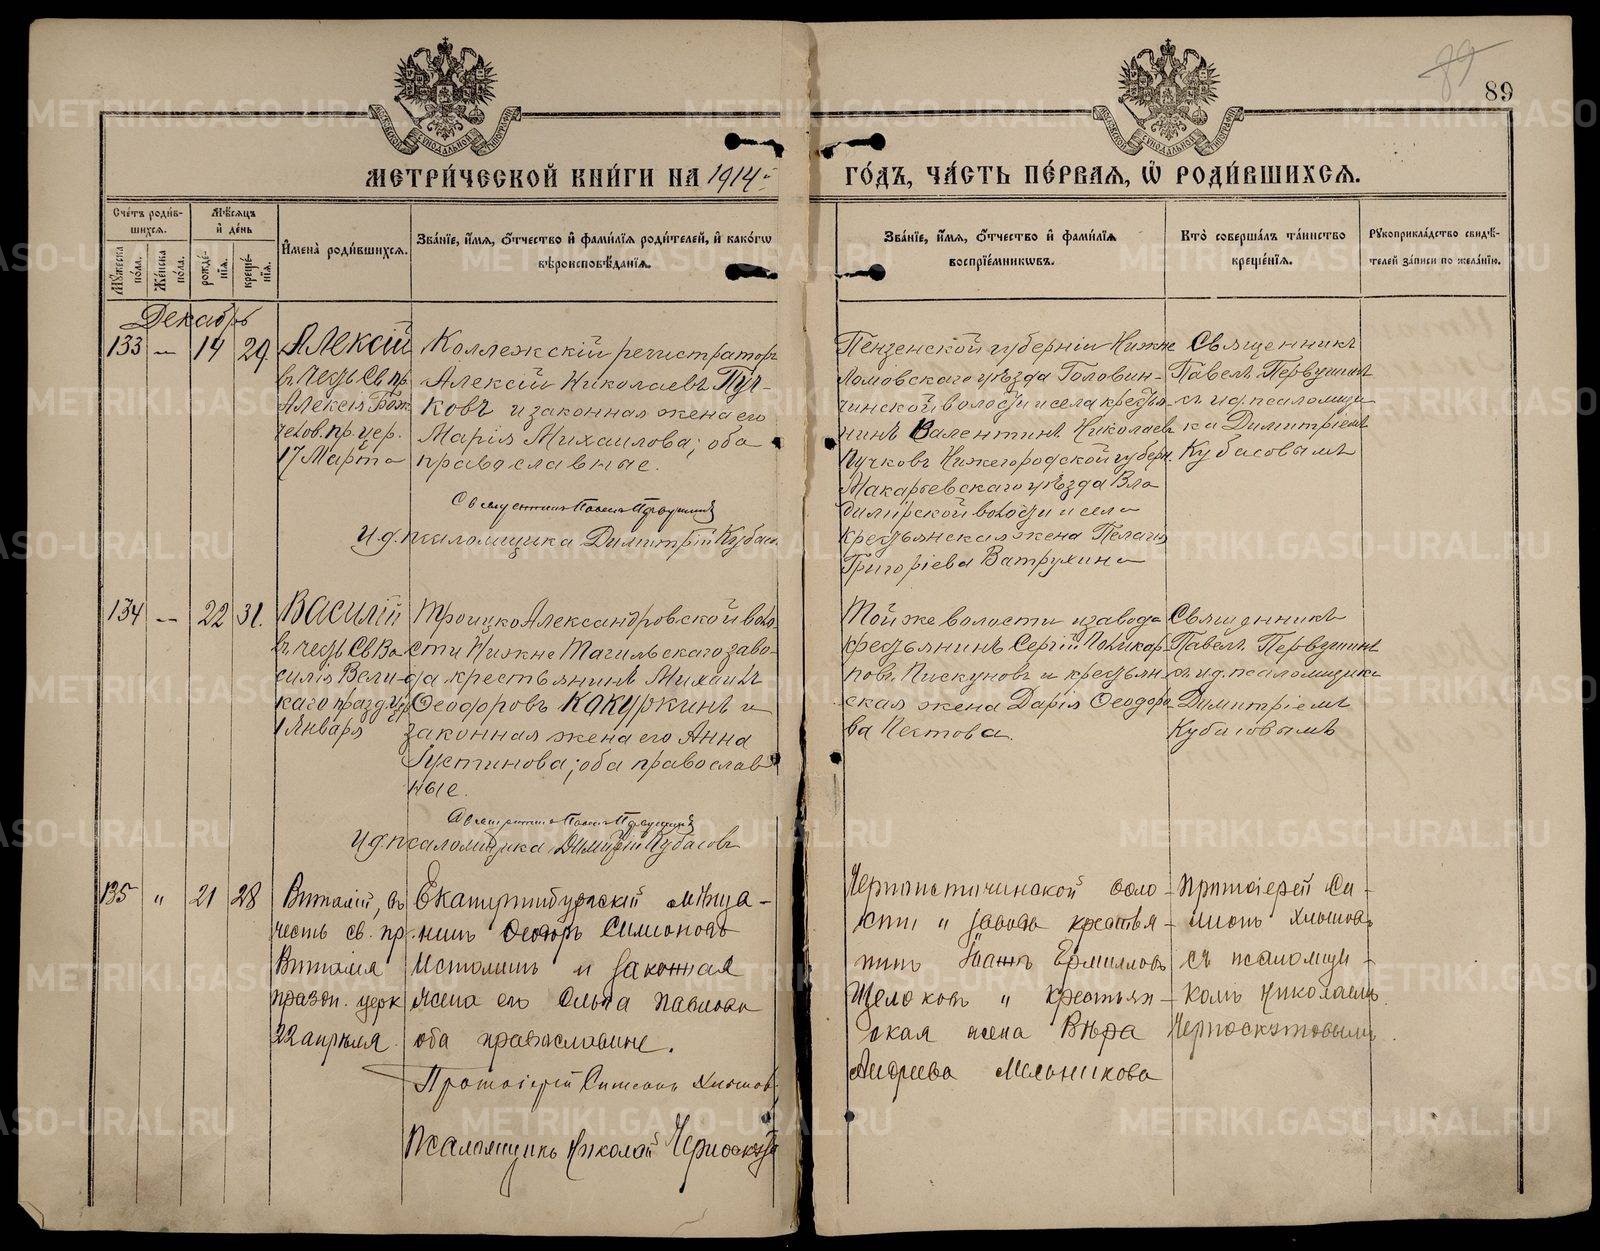 89
89
МЕТРИ́ЧЕСКОЙ КНИ́ГИ НА 1914 й
ГО́ДЪ, ЧА́СТЬ ПЕ́РВАЯ, Ѡ҆ РОДИ́ВШИХСЯ.
Сче́тъ роди́вшихся.
Му́жеска по́ла.
Же́нска по́ла.
Мѣ́сяцъ и҆ де́нь
рожде́нїя.
креще́нїя.
И҆мена̀ роди́вшихся.
Зва́нїе, и҆́мя, ѻ҆́тчество и҆ фами́лїя роди́телей, и҆ како́гѡ
вѣроисповѣ́данїя.
Зва́нїе, и҆́мя, ѻ҆́тчество и҆ фами́лїя
воспрїе́мникѡвъ.
Кто̀ соверша́лъ та́инство
креще́нїя.
Рꙋкоприкла́дство свидѣ́-
телей за́писи по жела́нїю.
Декабрь
133 — 14 29
Алексій
въ честь Св. пр.
Алексія Бож.
челов. пр. цер.
17 Марта
Коллежскій регистраторъ
Алексій Николаевъ Пуч-
ковъ и законная жена его
Марія Михаилова; оба
православные.
Священникъ Павелъ Первушинъ
И.д. псаломщика Димитрій Кубасо
Пензенской губерніи Нижне
Ломовскаго уѣзда Головин-
чинской волости и села крестья-
нинъ Валентинъ Николаев
Пучковъ Нижегородской губерн.
Макарьевскаго уѣзда Вла
димірской волости и села
крестьянская жена Пелагія
Григоріева Ватрухина
Священникъ
Павелъ Первушинъ
съ и.д. псаломщи
ка Димитріемъ
Кубасовымъ
134 — 22 31.
Василій
въ честь Св Ва
силія Вели-
каго празд. цер
1 Января
Троицко Александровской воло-
сти Нижне Тагильскаго заво-
да крестьянинъ Михаилъ
Ѳеодоровъ Какуркинъ и
законная жена его Анна
Густинова; оба православ
ные.
Священникъ Павелъ Первушинъ
И.д. псаломщика Димитрій Кубасовъ
Той же волости и завода
крестьянинъ Сергій Поликар
повъ Пискуновъ и крестьян
ская жена Дарія Ѳеодоро
ва Пестова.
Священникъ
Павелъ Первушинъ
съ и.д. псаломщика
Димитріемъ
Кубасовымъ
135 " 21 28
Виталій, въ
честь св. пр.
Виталія
праздн. церк
22 апрѣля.
Екатеринбургскій мѣща-
нинъ Ѳеодоръ Симеоновъ
Истоминъ и законная
жена его Ольга Павлова
оба православные.
Протоіерей Симеонъ Хлыновъ
Псаломщикъ Николай
Черноисточинской воло-
сти и завода крестья-
нинъ Іоаннъ Ермиловъ
Щелоковъ и крестьян-
ская жена Вѣра
Андреева Мельникова
Протоіерей Си-
меонъ Хлыновъ
съ псаломщи-
комъ Николаемъ
Черноскутовымъ.